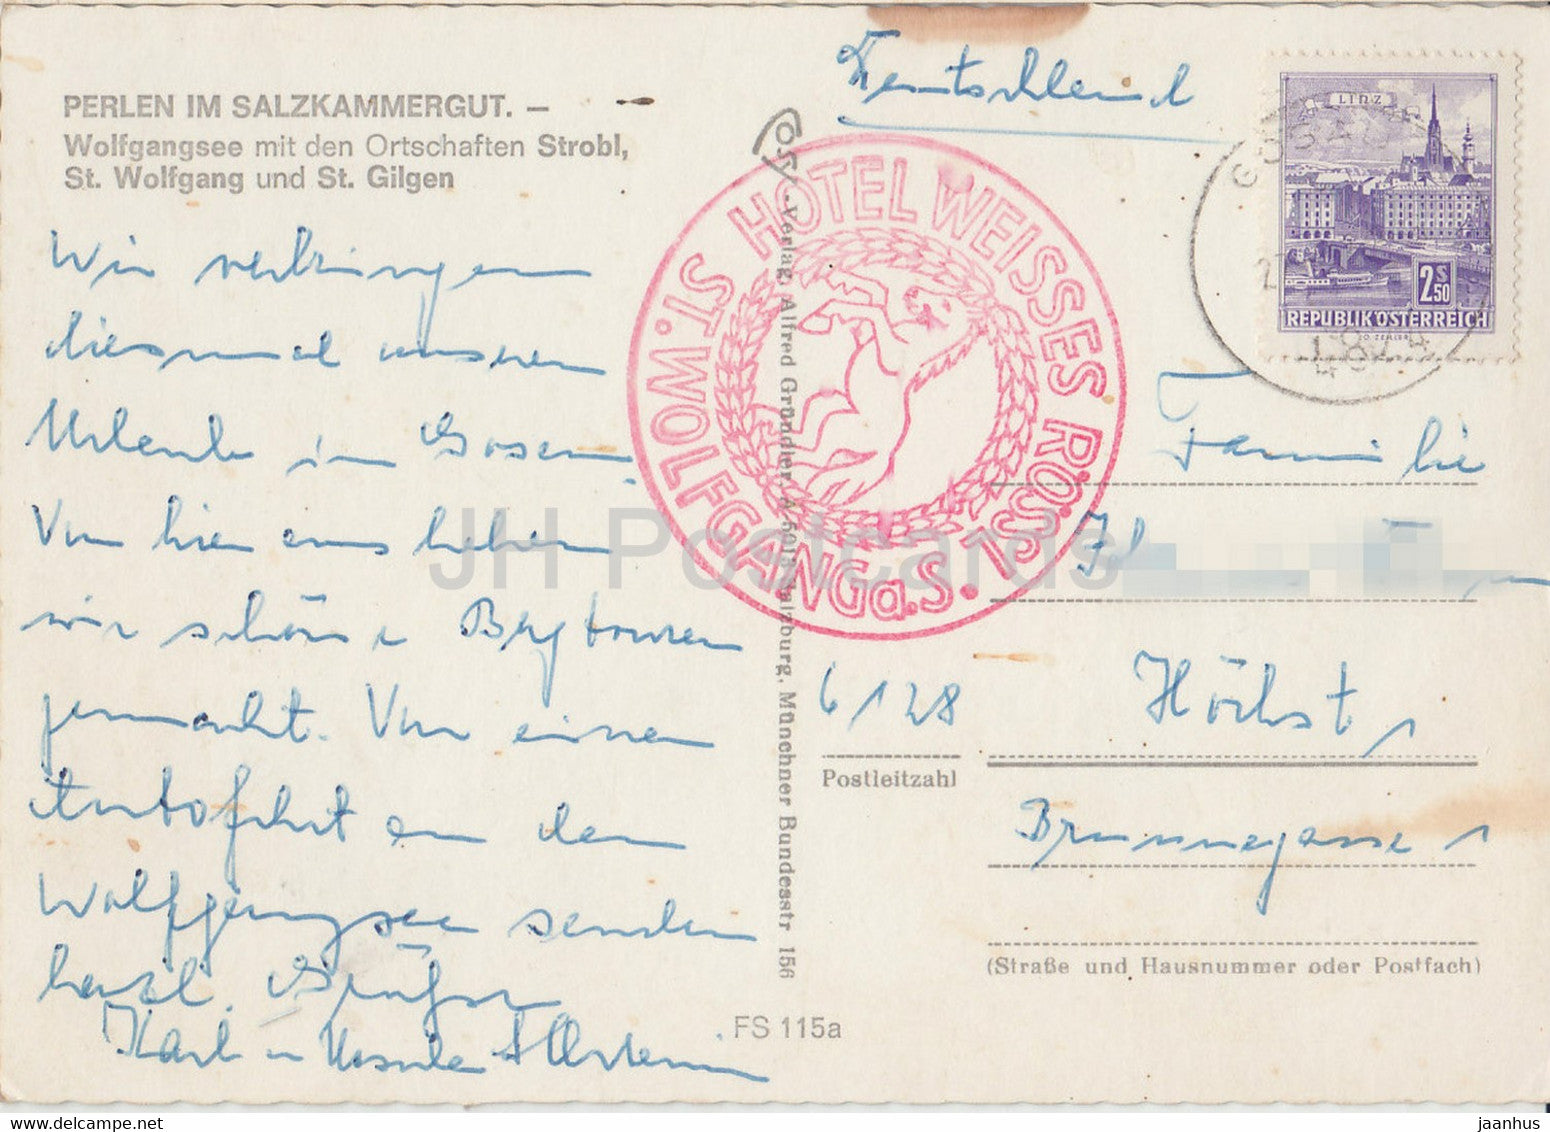 PERLEN IM SALZKAMMERGUT. –
Wolfgangsee mit den Ortschaften Strobl,
St. Wolfgang und St. Gilgen
Wir verbringen
diesmal unseren
Urlaub in Gosau.
Von hier aus haben
wir schöne Bergtouren
gemacht. Von einer
Autofahrt an den
Wolfgangsee senden
herzl. Grüße
Karl u Ursula
FS 115a
Verlag, Alfred Gründler, A-5013 Salzburg, Münchner Bundesstr 156
HOTEL WEISSES RÖSSL
ST. WOLFGANG a.S.
Deutschland
LINZ
2.50 S
REPUBLIK ÖSTERREICH
GOSAU
4824
Familie
6128 Höchst,
Postleitzahl
Brunnegasse 1
(Straße und Hausnummer oder Postfach)
JH Postcards
jaanhus